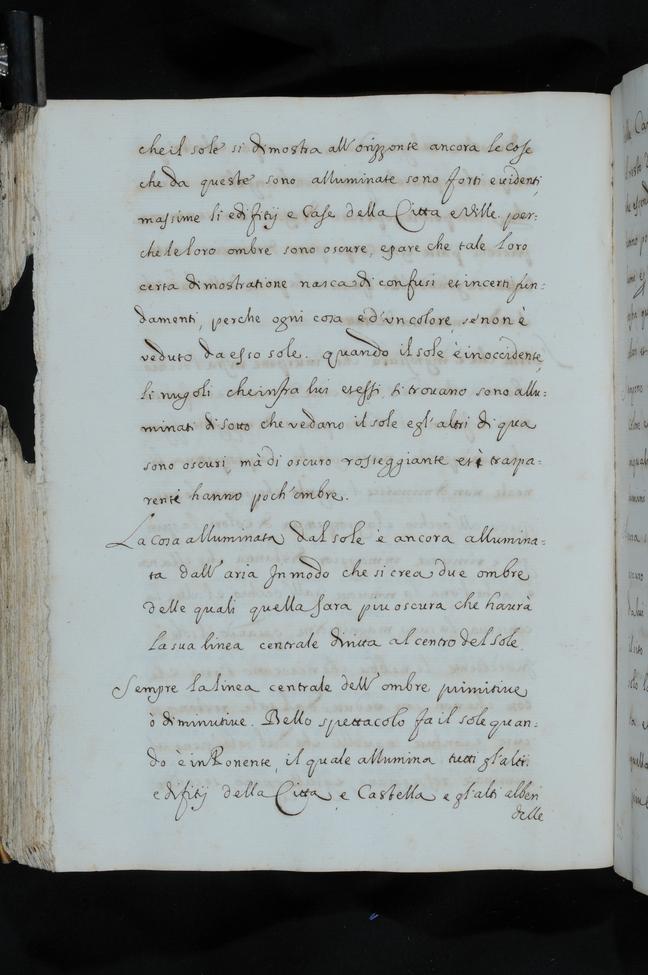 che il sole si dimostra all'orizzonte ancora le cose
che da queste sono alluminate sono forti evidenti,
massime li edifitij e Case della Citta e Ville. per:
che le loro ombre sono oscure, e pare che tale loro
certa dimostratione nasca di confusi et incerti fun:
damenti, perche ogni cosa è d'un colore, se non è
veduto da esso sole. quando il sole è in occidente,
li nugoli che infra lui et essi, si trouano sono allu:
minati di sotto che vedano il sole e gl'altri di qua
sono oscuri, mà di oscuro rosseggiante et i traspa:
renti hanno poch'ombre.
La cosa alluminata dal sole è ancora allumina:
ta dall'aria In modo che si crea due ombre
delle quali quella sara piu oscura che haurà
la sua linea centrale diritta al centro del sole.
Sempre la linea centrale dell'ombre primitiue
ò diminutiue. Bello spettacolo fa il sole quan:
do è in Ponente, il quale allumina tutti gl'alti
edifitij della Citta, e Castella e gl'alti alberi
delle